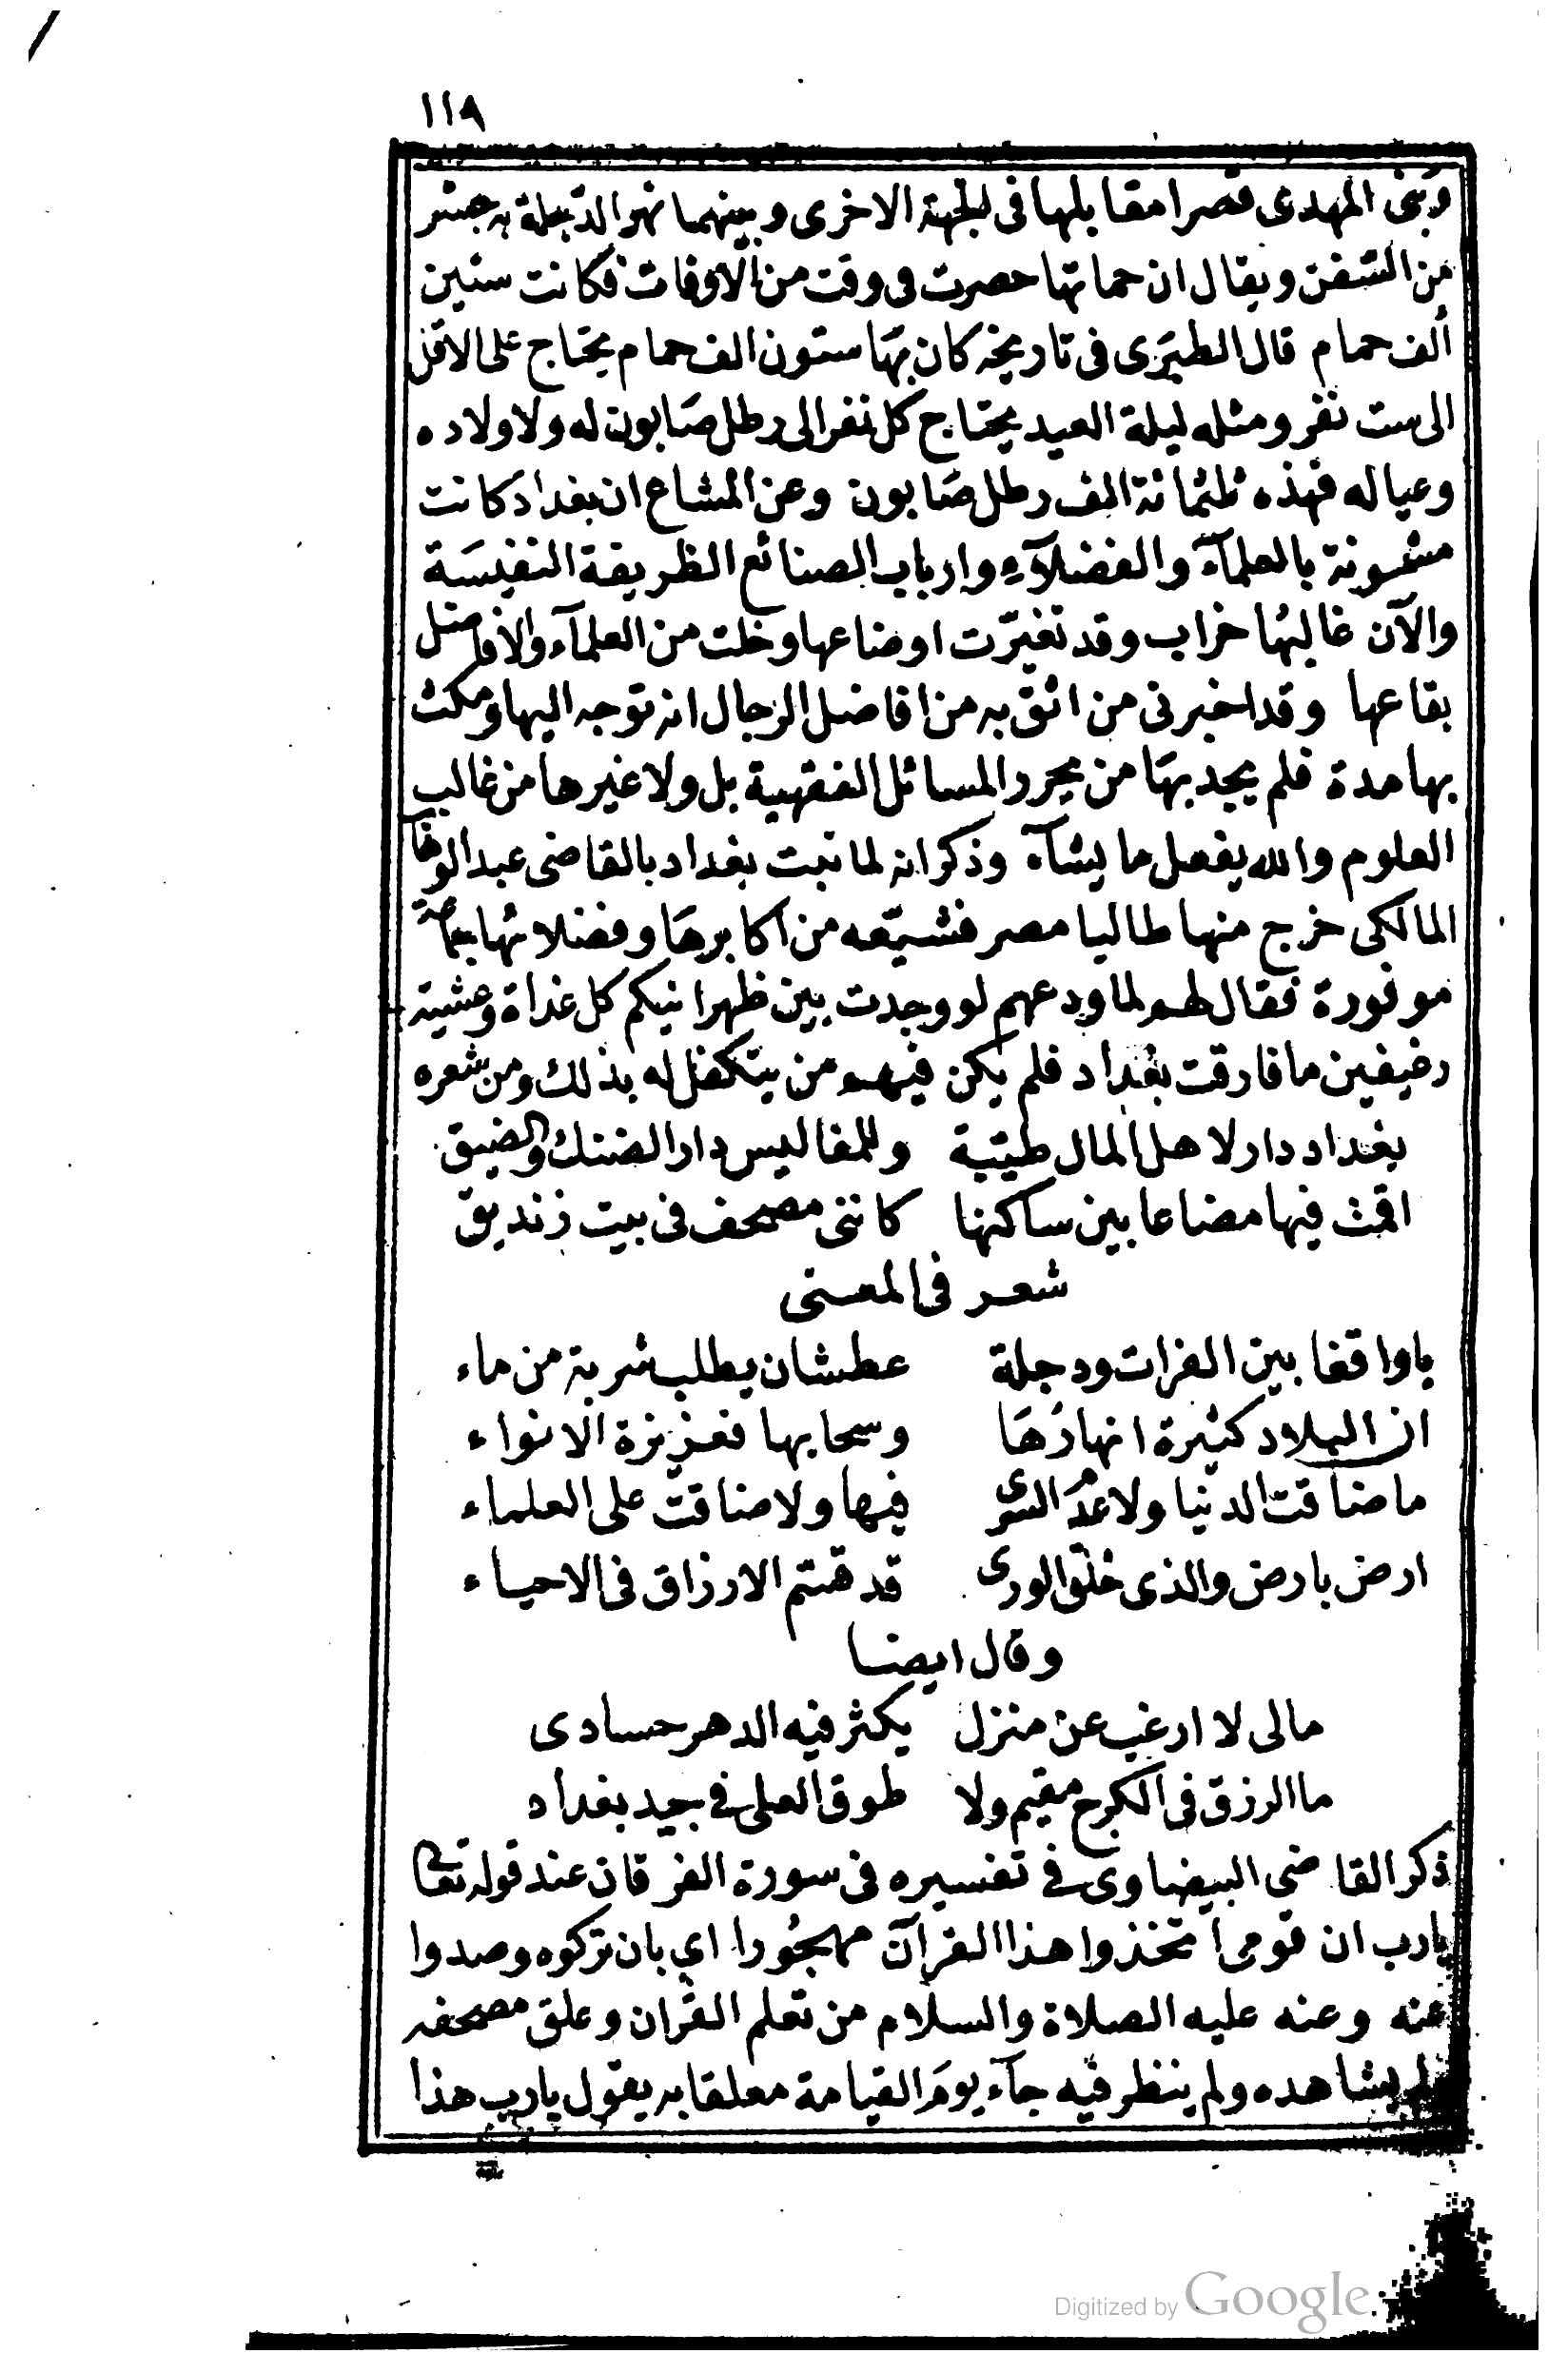 ١١٨
وبنى المهدى قصرا مقابلها فى الجهة الاخرى وبينهما نهر الدجلة به جسر
من السفن ويقال ان حماتها حصرت فى وقت من الاوقات فكانت ستين
ألف حمام قال الطبرى فى تاريخه كان بها ستون الف حمام يحتاج على الاقل
الى ست نفر ومثله ليلة العيد يحتاج كل نفر الى رطل صابون له ولاولاده
وعياله فهذه ثلثمائة الف رطل صابون وعن المشاع ان بغداد كانت
مشحونة بالعلمآء والفضلآء وارباب الصنائع الظريفة النفيسة
والآن غالبها خراب وقد تغيرت اوضاعها وخلت من العلمآء والافاضل
بقاعها وقد اخبرنى من اثق به من افاضل الرجال انه توجه اليها ومكث
بها مدة فلم يجد بها من يحرر المسائل الفقهية بل ولا غيرها من غالب
العلوم والله يفعل ما يشآء وذكر انه لما نبت بغداد بالقاضى عبد الوهاب
المالكى خرج منها طالبا مصر فشيعه من اكابرها وفضلائها جماعة
موفورة فقال لهم لما ودعهم لو وجدت بين ظهرانيكم كل غداة وعشية
رغيفين ما فارقت بغداد فلم يكن فيهم من يتكفل له بذلك ومن شعره
بغداد دار لاهل المال طيبة وللمفاليس دار الضنك والضيق
اقمت فيها مضاعا بين ساكنها كاننى مصحف فى بيت زنديق
شعر فى المعنى
ياواقفا بين الفرات ودجلة عطشان يطلب شربة من ماء
ان البلاد كثيرة انهارها وسحابها فغزيزة الانواء
ما ضاقت الدنيا ولا عدم السرى فيها ولا ضاقت على العلماء
ارض بارض والذى خلق الورى قد قسم الارزاق فى الاحياء
وقال ايضا
مالى لا ارغب عن منزل يكثر فيه الدهر حسادى
ما الرزق فى الكرخ مقيم ولا طوق العلى فى جيد بغداد
ذكر القاضى البيضاوى فى تفسيره فى سورة الفرقان عند قوله تعالى
يارب ان قومى اتخذوا هذا القرآن مهجورا اى بان تركوه وصدوا
عنه وعنه عليه الصلاة والسلام من تعلم القران وعلق مصحفه
لم يشاهده ولم ينظر فيه جآء يوم القيامة معلقا به يقول يارب هذا
Digitized by Google